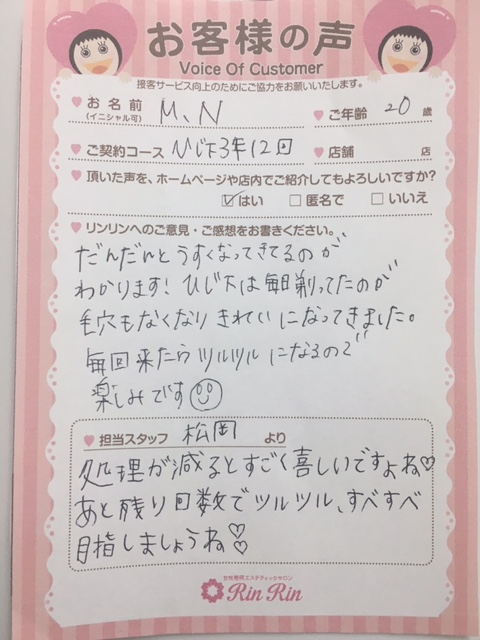 お客様の声
Voice Of Customer
接客サービス向上のためにご協力をお願いいたします。
お名前 M、N ご年齢 20 歳
(イニシャル可)
ご契約コース ひじ下3年12回 店舗 店
頂いた声を、ホームページや店内でご紹介してもよろしいですか?
はい 匿名で いいえ
リンリンへのご意見・ご感想をお書きください。
だんだんとうすくなってきてるのが
わかります!ひじ下は毎日剃ってたのが
毛穴もなくなりきれいになってきました。
毎回来たらツルツルになるので
楽しみです
担当スタッフ 松岡 より
処理が減るとすごく喜しいですよね♡
あと残り回数でツルツル、すべすべ
目指しましょうね♡♡
女性専用エステティックサロン
Rin Rin